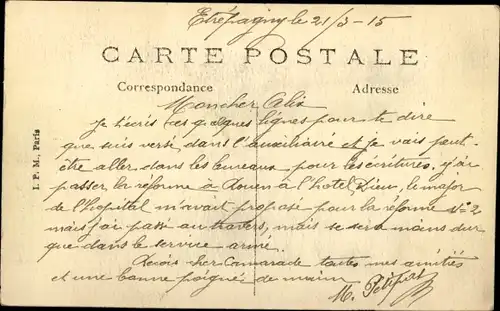 Etrépagny le 21/3-15
CARTE POSTALE
Correspondance Adresse
Mon cher Alix
Je t'écris ces quelques lignes pour te dire
que suis versé dans l'auxiliaire et je vais peut-
être aller dans les bureaux pour les écritures, j'ai
passer la réforme à Rouen à l'hotel Dieu, le major
de l'hopital m'avait proposé pour la réforme No 2
mais j'ai passé au travers, mais se sera moins dur
que dans le service armé.
Reçois cher Camarade toutes mes amitiés
et une bonne poigné de main
M.
I. P. M., Paris